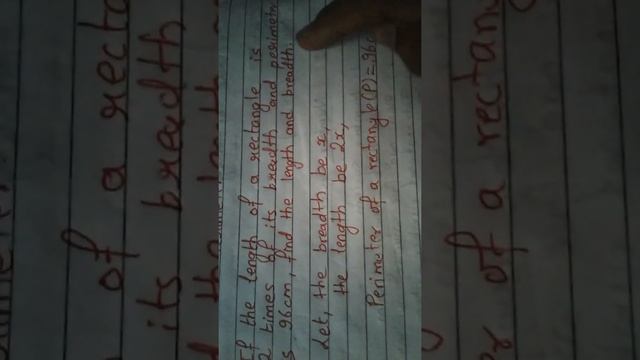 If the length of a rectangle is
2 times of its breadth and perimetr
s 96cm, find the length and breadth.
Let, the breadth be x,
the length be 2x,
Perimeter of a rectangle(P)=96c